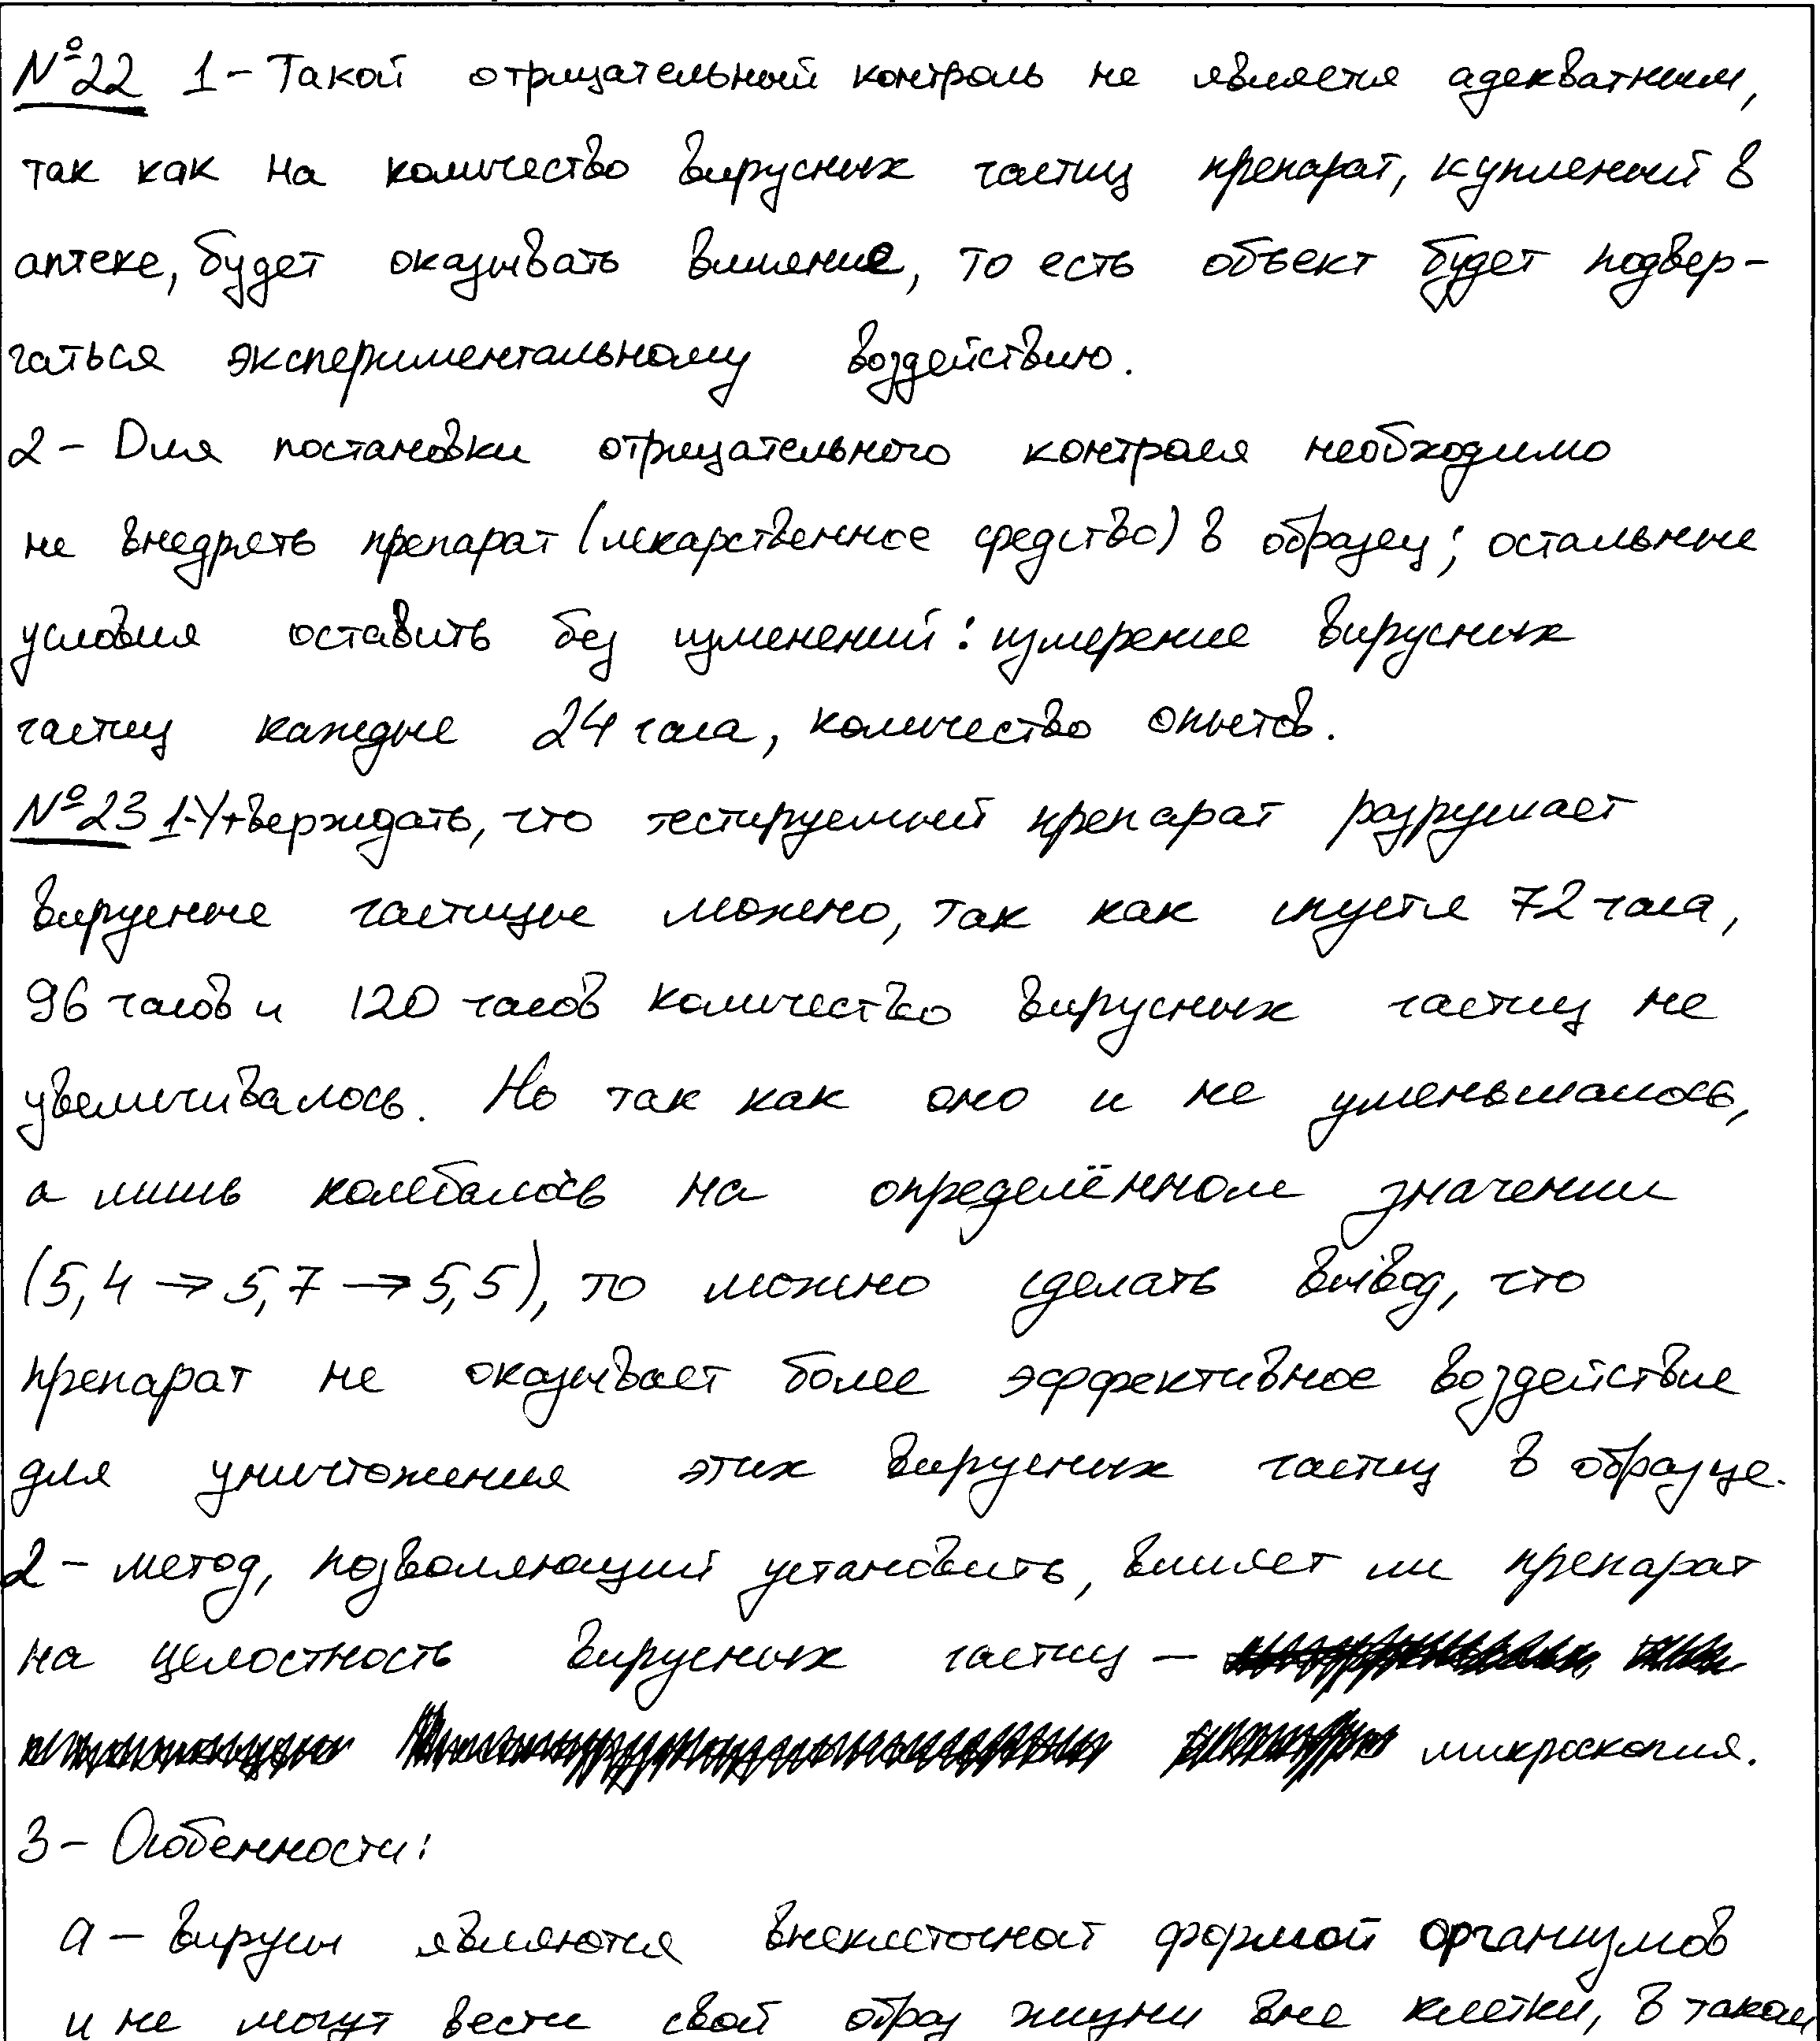 №22 1- Такой отрицательный контроль не является адекватным,
так как на количество вирусных частиц препарат, купленый в
аптеке, будет оказывать влияние, то есть объект будет подвер-
гаться экспериментальному воздействию.
2 - Для постановки отрицательного контроля необходимо
не внедрять препарат (лекарственное средство) в образец; остальные
условия оставить без изменений: измерение вирусных
частиц каждые 24 часа, количество опытов.
№23 1-Утверждать, что тестируемый препарат разрушает
вирусные частицы можно, так как спустя 72 часа,
96 часов и 120 часов количество вирусных частиц не
увеличивалось. Но так как оно и не уменьшалось,
а лишь колебалось на определённом значении
(5,4 → 5,7 → 5,5), то можно сделать вывод, что
препарат не оказывает более эффективное воздействие
для уничтожения этих вирусных частиц в образце.
2 - метод, позволяющий установить, влияет ли препарат
на целостность вирусных частиц -
микроскопия.
3 - Особенности:
а - вирусы являются внеклеточной формой организмов
и не могут вести свой образ жизни вне клетки, в таком